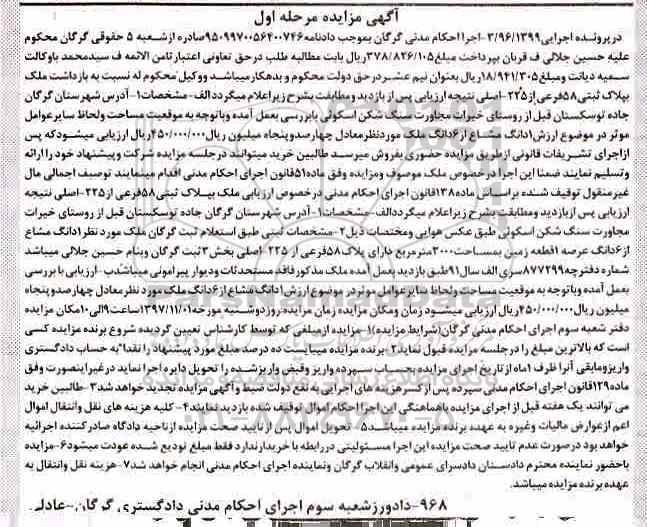 آگهی مزایده مرحله اول
در پرونده اجرایی ۳/۹۶/۱۳۹۹-اجرا احکام مدنی گرگان بموجب دادنامه ۹۵۰۹۹۷۰۰۵۶۴۰۰۷۴۶ صادره از شعبه ۵ حقوقی گرگان محکوم
علیه حسین جلالی ف قربان بپرداخت مبلغ ۳۷۸/۸۲۶/۱۰۵ ریال بابت مطالبه طلب در حق تعاونی اعتبار ثامن الائمه ف سیدمحمد باوکالت
سمیه دیانت ومبلغ ۱۸/۹۴۱/۳۰۵ ریال بعنوان نیم عشر در حق دولت محکوم و بدهکار میباشد و وکیل محکوم له نسبت به بازداشت ملک
بپلاک ثبتی ۵۸ فرعی از ۲۲۵-اصلی نتیجه ارزیابی پس از بازدید و مطابقت بشرح زیر اعلام میگردد الف-مشخصات ۱-آدرس شهرستان گرگان
جاده توسکستان قبل از روستای خیرات مجاورت سنگ شکن اسکوئی بابررسی بعمل آمده وباتوجه به موقعیت مساحت ولحاظ سایر عوامل
موثر در موضوع ارزش ۱ دانگ مشاع از ۶ دانگ ملک مورد نظر معادل چهارصدوپنجاه میلیون ریال ۴۵۰/۰۰۰/۰۰۰ ریال ارزیابی میشود که پس
از اجرای تشریفات قانونی از طریق مزایده حضوری بفروش میرسد طالبین خرید میتوانند در جلسه مزایده شرکت و پیشنهاد خود را ارائه
وتسلیم نمایند ضمنا این اجرا در خصوص ملک موصوف ومزایده وفق ماده ۵۱ قانون اجرای احکام مدنی اقدام مینمایند توصیف اجمالی مال
غیرمنقول توقیف شده براساس ماده ۱۳۸ قانون اجرای احکام مدنی در خصوص ارزیابی ملک بپلاک ثبتی ۵۸ فرعی از ۲۲۵-اصلی نتیجه
ارزیابی پس از بازدید ومطابقت بشرح زیر اعلام میگردد الف-مشخصات ۱-آدرس شهرستان گرگان جاده توسکستان قبل از روستای خیرات
مجاورت سنگ شکن اسکوئی طبق عکس هوایی ومختصات ذیل ۲-مشخصات ثبتی طبق استعلام ثبت گرگان ملک مورد نظر ۱ دانگ مشاع
از ۶ دانگ عرصه ۱ قطعه زمین بمساحت ۳۰۰۰ مترمربع دارای پلاک ۵۸ فرعی از ۲۲۵-اصلی بخش ۳ ثبت گرگان وبنام حسین جلالی میباشد
شماره دفترچه ۸۷۷۲۹۹ سری الف سال ۹۱ طبق بازدید بعمل آمده ملک مذکور فاقد مستحدثات ودیوار پیرامونی میباشد ب-ارزیابی با بررسی
بعمل آمده وباتوجه به موقعیت مساحت ولحاظ سایر عوامل موثر در موضوع ارزش ۱ دانگ مشاع از ۶ دانگ ملک مورد نظر معادل چهارصدوپنجاه
میلیون ریال ۴۵۰/۰۰۰/۰۰۰ ریال ارزیابی میشود زمان ومکان مزایده زمان مزایده روز دوشنبه مورخه ۱۳۹۷/۱۱/۰۱ ساعت ۹ الی ۱۰ مکان مزایده
دفتر شعبه سوم اجرای احکام مدنی گرگان (شرایط مزایده) ۱-مزایده از مبلغی که توسط کارشناس تعیین گردیده شروع برنده مزایده کسی
است که بالاترین مبلغ را در جلسه مزایده قبول نماید ۲-برنده مزایده میبایست ده درصد مبلغ مورد پیشنهاد را نقدا" به حساب دادگستری
واریز ومابقی آنرا ظرف ۱ ماه از تاریخ اجرای مزایده بحساب سپرده واریز وقبض واریز شده را تحویل دایره اجرا نماید در غیراینصورت وفق
ماده ۱۲۹ قانون اجرای احکام مدنی سپرده پس از کسر هزینه های اجرایی به نفع دولت ضبط و آگهی مزایده تجدید خواهد شد ۳-طالبین خرید
می توانند یک هفته قبل از اجرای مزایده باهماهنگی این اجرا احکام اموال توقیف شده بازدید نمایند ۴-کلیه هزینه های نقل وانتقال اموال
اعم از عوارض مالیات وغیره به عهده برنده مزایده میباشد ۵-تحویل اموال پس از تایید صحت مزایده از ناحیه دادگاه صادر کننده اجرائیه
خواهد بود در صورت عدم تایید صحت مزایده این اجرا مسئولیتی در رابطه با خریدار ندارد فقط مبلغ تودیع شده عودت میشود ۶-مزایده
باحضور نماینده محترم دادستان دادسرای عمومی وانقلاب گرگان ونماینده اجرای احکام مدنی انجام خواهد شد ۷-هزینه نقل وانتقال به
عهده برنده مزایده میباشد.
۹۶۸-دادورز شعبه سوم اجرای احکام مدنی دادگستری گرگان-عادل